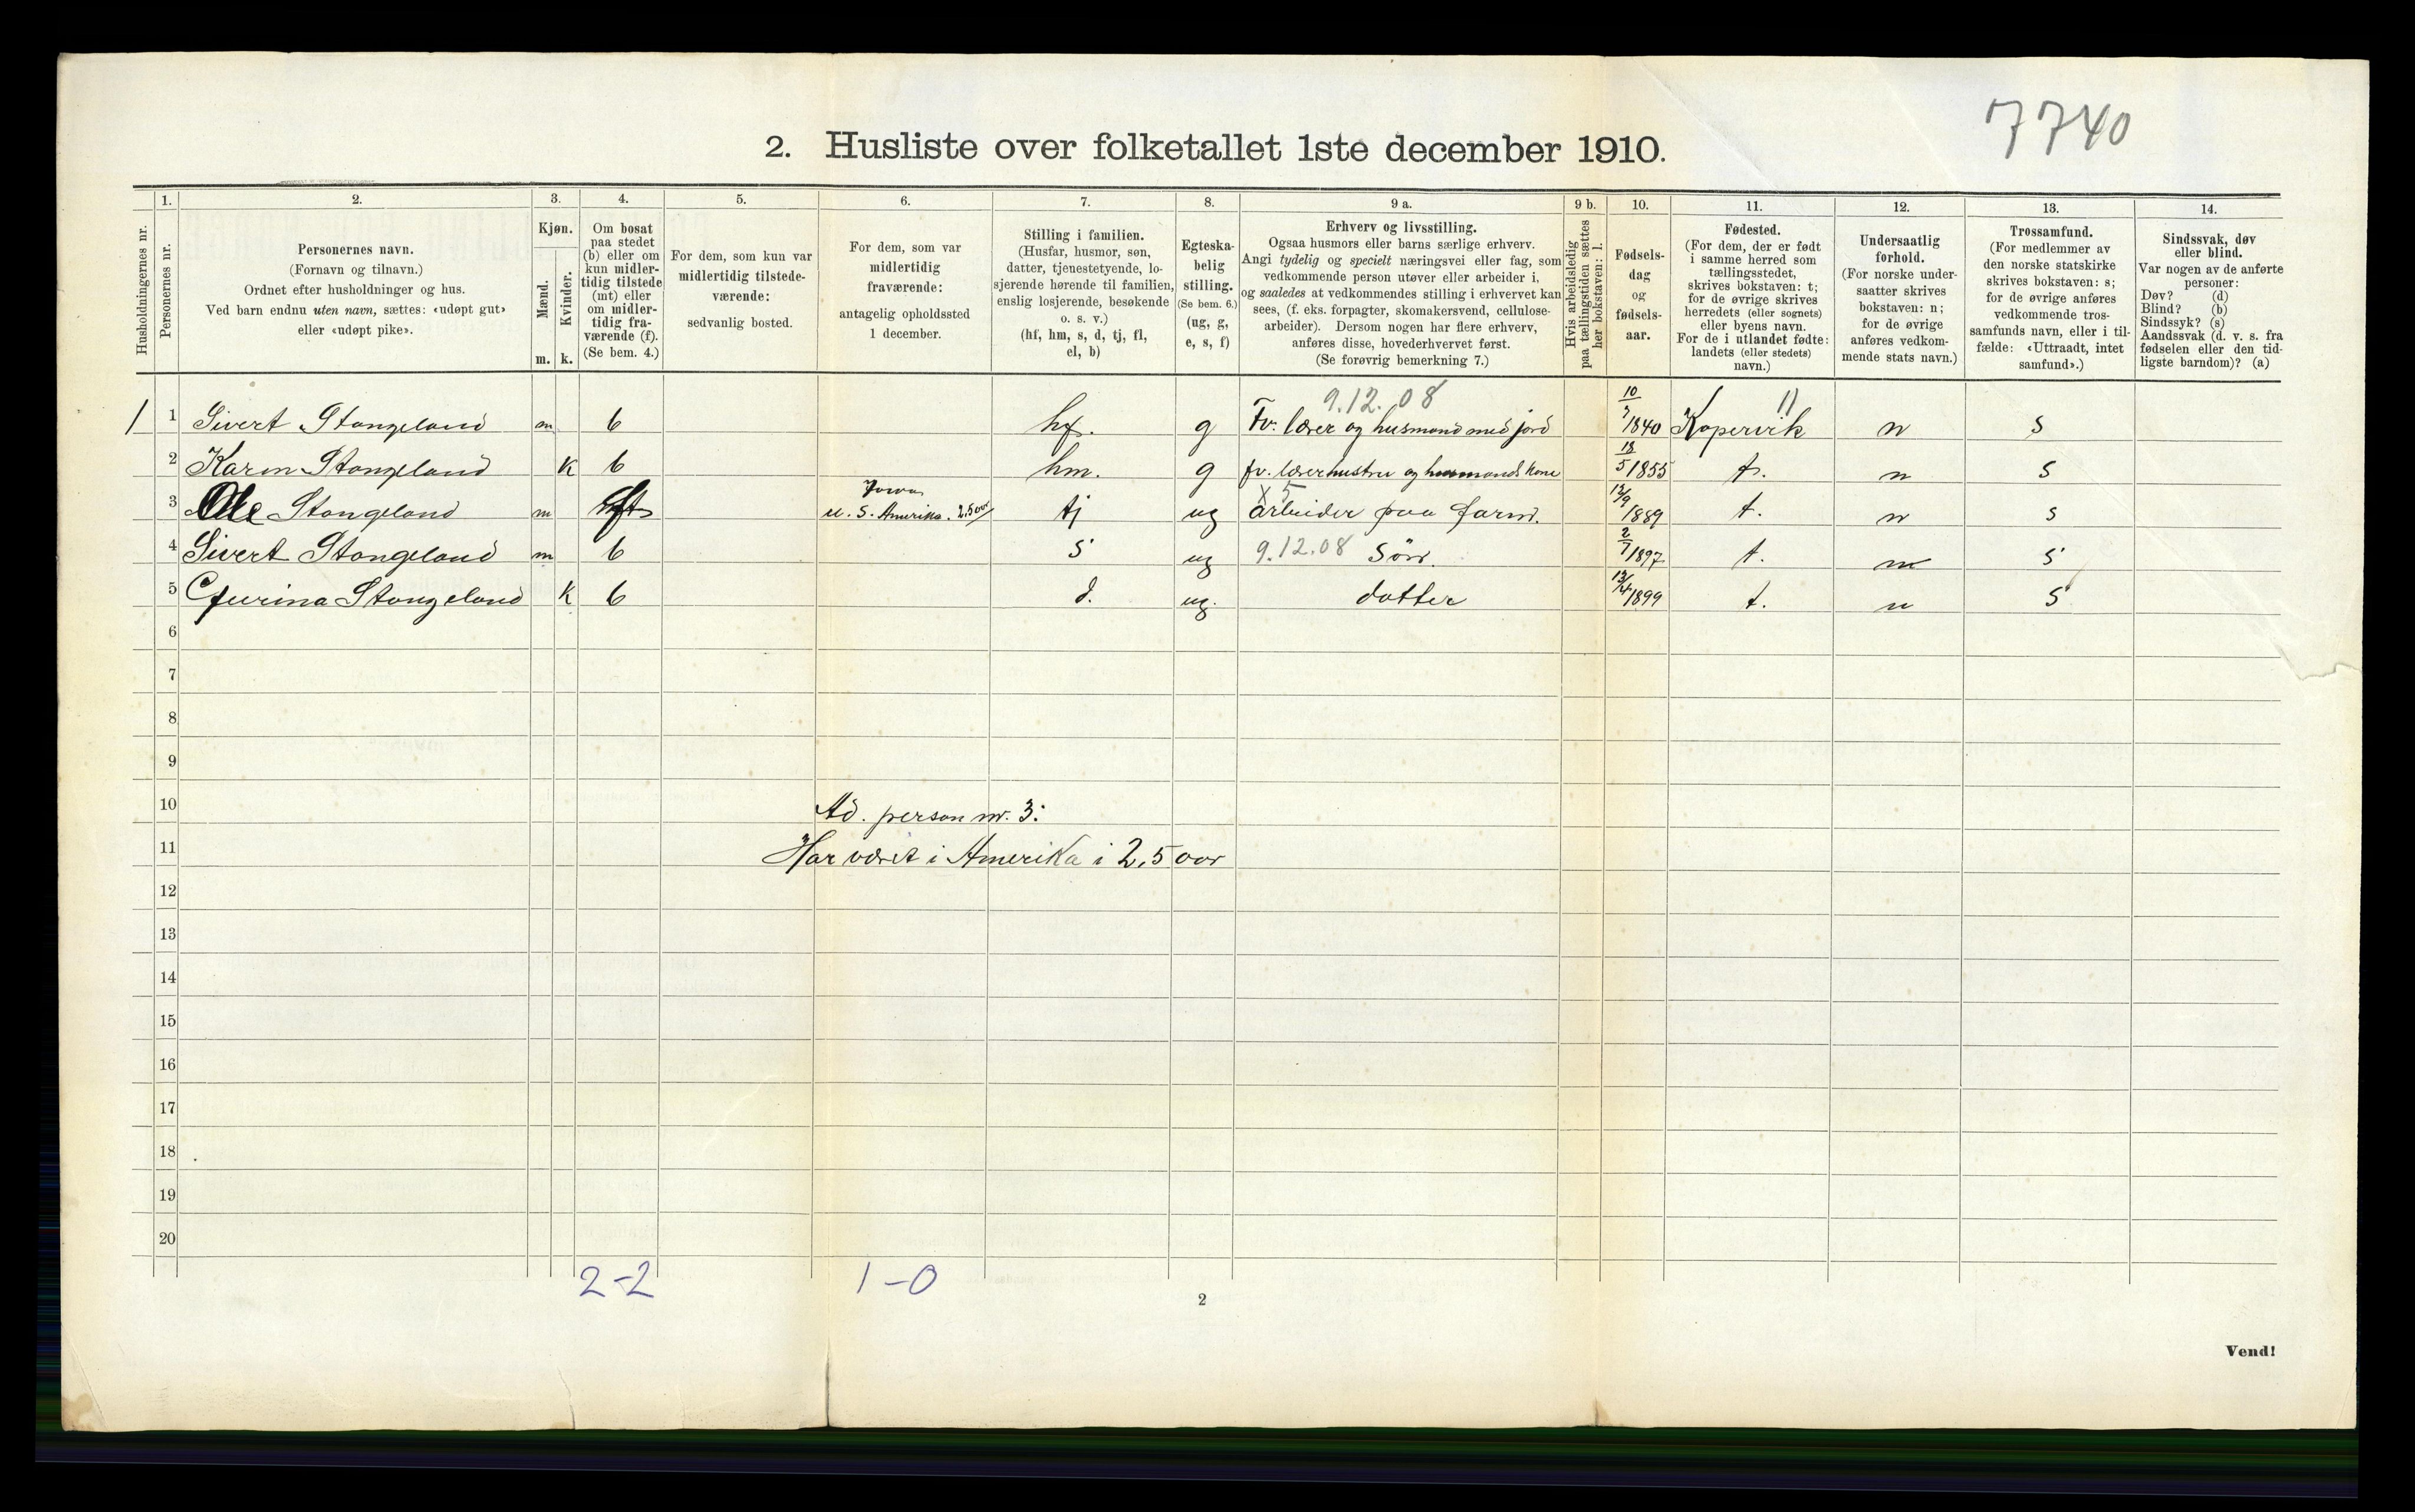 7740
2. Husliste over folketallet 1ste december 1910.
Husholdningernes nr.
1.
Personernes nr.
2.
Personernes navn.
(Fornavn og tilnavn.)
Ordnet efter husholdninger og hus.
Ved barn endnu uten navn, sættes: «udøpt gut»
eller «udøpt pike».
3.
Kjøn.
Mænd.
Kvinder.
m. k.
4.
Om bosat
paa stedet
(b) eller om
kun midler-
tidig tilstede
(mt) eller
om midler-
tidig fra-
værende (f).
(Se bem. 4.)
5.
For dem, som kun var
midlertidig tilstede-
værende:
sedvanlig bosted.
6.
For dem, som var
midlertidig
fraværende:
antagelig opholdssted
1 december.
7.
Stilling i familien.
(Husfar, husmor, søn,
datter, tjenestetyende, lo-
sjerende hørende til familien,
enslig losjerende, besøkende
o. s. v.)
(hf, hm, s, d, tj, fl,
el, b)
8.
Egteska-
belig
stilling.
(Se bem. 6.)
(ug, g,
e, s, f)
9 a.
Erhverv og livsstilling.
Ogsaa husmors eller barns særlige erhverv.
Angi tydelig og specielt næringsvei eller fag, som
vedkommende person utøver eller arbeider i,
og saaledes at vedkommendes stilling i erhvervet kan
sees, (f. eks. forpagter, skomakersvend, cellulose-
arbeider). Dersom nogen har flere erhverv,
anføres disse, hovederhvervet først.
(Se forøvrig bemerkning 7.)
9 b.
Hvis arbeidsledig
paa tællingstiden sættes
her bokstaven: l.
10.
Fødsels-
dag
og
fødsels-
aar.
11.
Fødested.
(For dem, der er født
i samme herred som
tællingsstedet,
skrives bokstaven: t;
for de øvrige skrives
herredets (eller sognets)
eller byens navn.
For de i utlandet fødte:
landets (eller stedets)
navn.)
12.
Undersaatlig
forhold.
(For norske under-
saatter skrives
bokstaven: n;
for de øvrige
anføres vedkom-
mende stats navn.)
13.
Trossamfund.
(For medlemmer av
den norske statskirke
skrives bokstaven: s;
for de øvrige anføres
vedkommende tros-
samfunds navn, eller i til-
fælde: «Uttraadt, intet
samfund».)
14.
Sindssvak, døv
eller blind.
Var nogen av de anførte
personer:
Døv? (d)
Blind? (b)
Sindssyk? (s)
Aandssvak (d. v. s. fra
fødselen eller den tid-
ligste barndom)? (a)
9.12.08
1 1 Sivert Stangeland m b hf. g Fv. lærer og husmand med jord 10/7 1840 Kopervik 11 n s
2 Karen Stangeland k b hm. g fv. lærerhustru og husmands kone 18/5 1855 t. n s
Iowa x 5
3 Ole Stangeland m u. S. Amerika. 2.5 aar tj ug arbeider paa farm. 12/9 1889 t. n s
4 Sivert Stangeland m b s ug 9.12.08 Sön. 2/7 1897 t. n s
5 Gurina Stangeland k b d. ug. datter 13/4 1899 t. n s
6
7
8
9
10 Ad. person nr. 3:
11 Har været i Amerika i 2,5 aar
12
13
14
15
16
17
18
19
20
2-2 1-0
2
Vend!